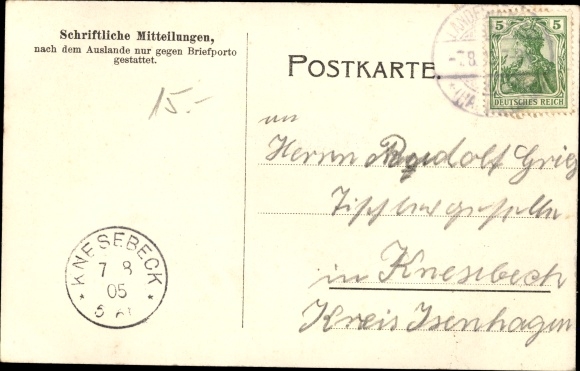 Schriftliche Mitteilungen,
nach dem Auslande nur gegen Briefporto
gestattet.
15.-
POSTKARTE.
5 5
DEUTSCHES REICH
an
Herrn Rudolf Grieg
Tischlergeselle
in Knesebeck
Kreis Isenhagen
* KNESEBECK *
7 8
05